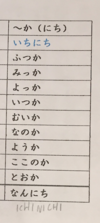 ～か（にち）
いちにち
ふつか
みっか
よっか
いつか
むいか
なのか
ようか
ここのか
とおか
なんにち
ICHI NICHI